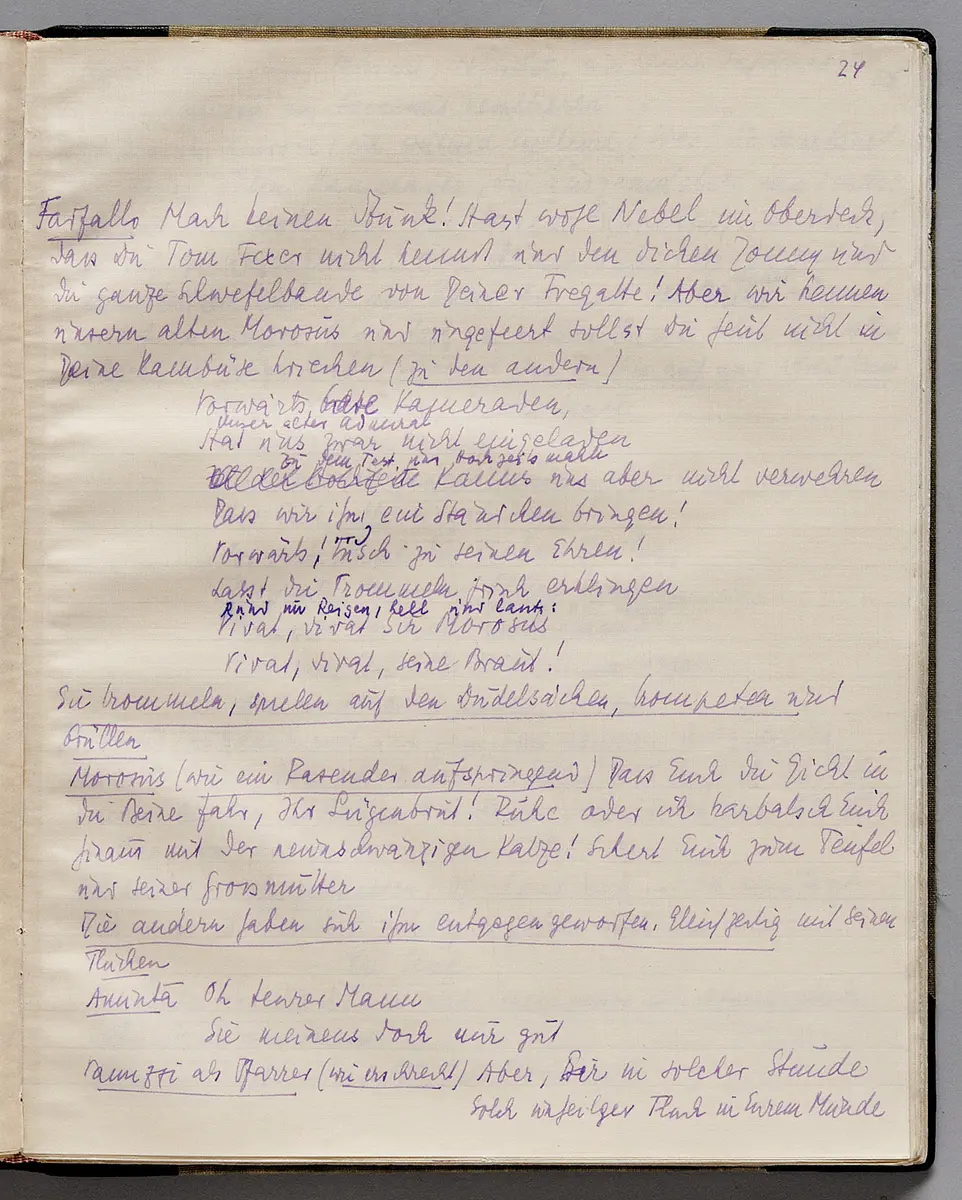 24
Farfallo Mach keinen Stunk! Hast wohl Nebel im Oberdeck,
dass Du Tom Fexer nicht kennst und den dicken Jonny und
die ganze Schwefelbande von Deiner Fregatte! Aber wir kennen
unsern alten Morosus und ungefeert sollst Du heut nicht in
Deine Kambüse kriechen (zu den andern)
Vorwärts, Kameraden,
Unser alter Admiral
Hat uns zwar nicht eingeladen
Zu dem Fest als Hochzeitsmann
Kanns uns aber nicht verwehren
Dass wir ihm ein Ständchen bringen!
Vorwärts! Tusch zu seinen Ehren!
Lasst die Trommeln frisch erklingen
Rund im Reigen, hell und laut:
Vivat, vivat Sir Morosus
Vivat, vivat, seine Braut!
Sie trommeln, spielen auf den Dudelsäcken, trompeten und
brüllen
Morosus (wie ein Rasender aufspringend) Dass Euch die Gicht in
die Beine fahr, Ihr Lügenbrut! Ruhe oder ich karbatsch Euch
hinaus mit der neunschwänzigen Katze! Schert Euch zum Teufel
und seiner Grossmutter
Die andern haben sich ihm entgegengeworfen. Gleichzeitig mit seinen
Flüchen
Aminta Oh teurer Mann
Sie meinens doch nur gut
Vanuzzi als Pfarrer (wie erschreckt) Aber, Sir in solcher Stunde
Solch unheilger Fluch in Eurem Munde